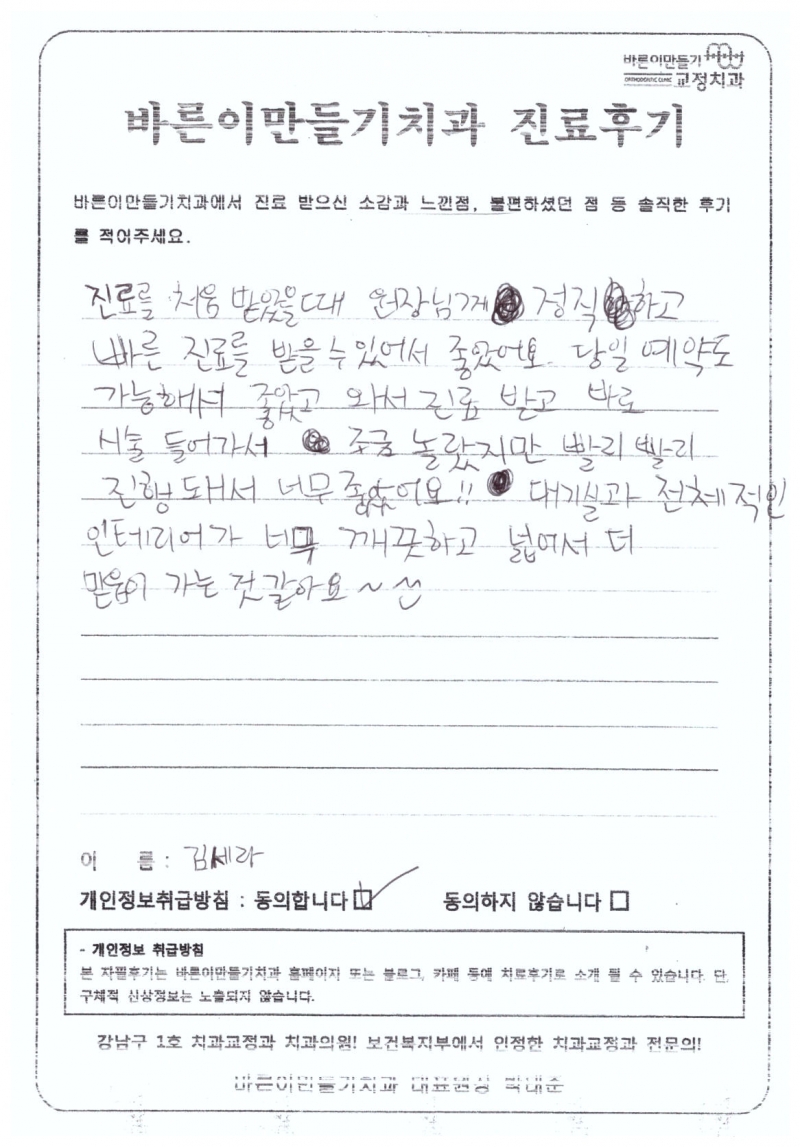 바른이만들기
ORTHODONTIC CLINIC 교정치과
바른이만들기치과 진료후기
바른이만들기치과에서 진료 받으신 소감과 느낀점, 불편하셨던 점 등 솔직한 후기
를 적어주세요.
진료를 처음 받았을때 원장님께 정직하고
빠른 진료를 받을 수 있어서 좋았어요. 당일 예약도
가능해서 좋았고 와서 진료 받고 바로
시술 들어가서 조금 놀랐지만 빨리 빨리
진행돼서 너무 좋았어요!! 대기실과 전체적인
인테리어가 너무 깨끗하고 넓어서 더
믿음이 가는 것 같아요~
이 름 : 김세라
개인정보취급방침 : 동의합니다 동의하지 않습니다
- 개인정보 취급방침
본 자필후기는 바른이만들기치과 홈페이지 또는 블로그, 카페 등에 치료후기로 소개 될 수 있습니다. 단,
구체적 신상정보는 노출되지 않습니다.
강남구 1호 치과교정과 치과의원! 보건복지부에서 인정한 치과교정과 전문의!
바른이만들기치과 대표원장